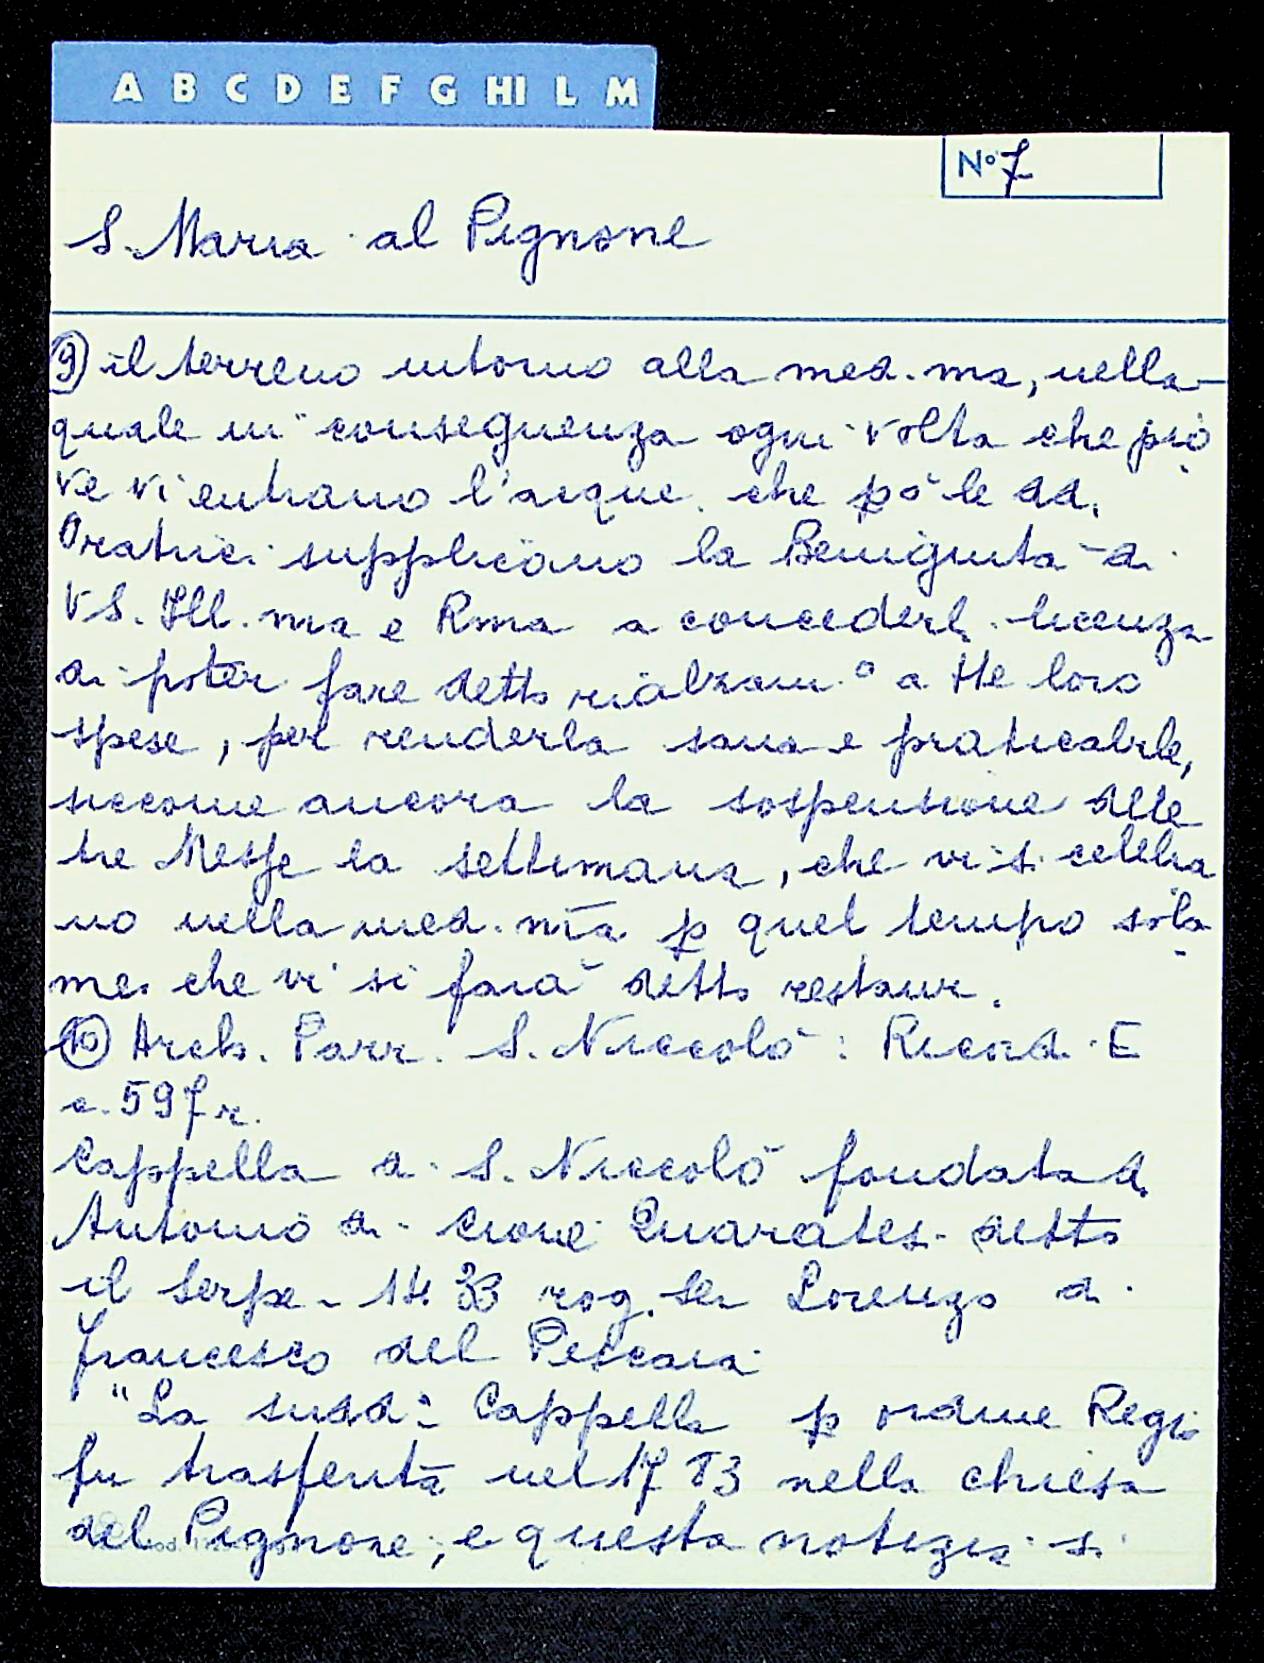 A B C D E F G HI L M
N° 7
S. Maria al Pignone
⑨ il terreno intorno alla med.ma, nella
quale in conseguenza ogni volta che pio
ve vi entrano l'acque. che pò le dd.
Oratrici supplicano la Benignità di
VS. Ill.ma e Rma a concederli licenza
di poter fare detto rialzam.o a tte loro
spese, per renderla sana e praticabile,
siccome ancora la sospensione delle
tre Messe la settimana, che vi si celebra
no nella med.ma p quel tempo sola
me. che vi si farà detto restaur.
⑩ Arch. Parr. S. Niccolò: Ricord. E
c. 597r.
Cappella di S. Niccolò fondata d.
Antonio di Cione Quaratesi detto
il Serpe - 1433 rog. Ser Lorenzo di
Francesco del Pescaia
"La sudd: Cappella p ordine Regio
fu trasferita nel 1783 nella chiesa
del Pignone, e questa notizia si